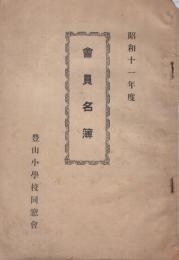 昭和十一年度
會員名簿
豊山小學校同窓會